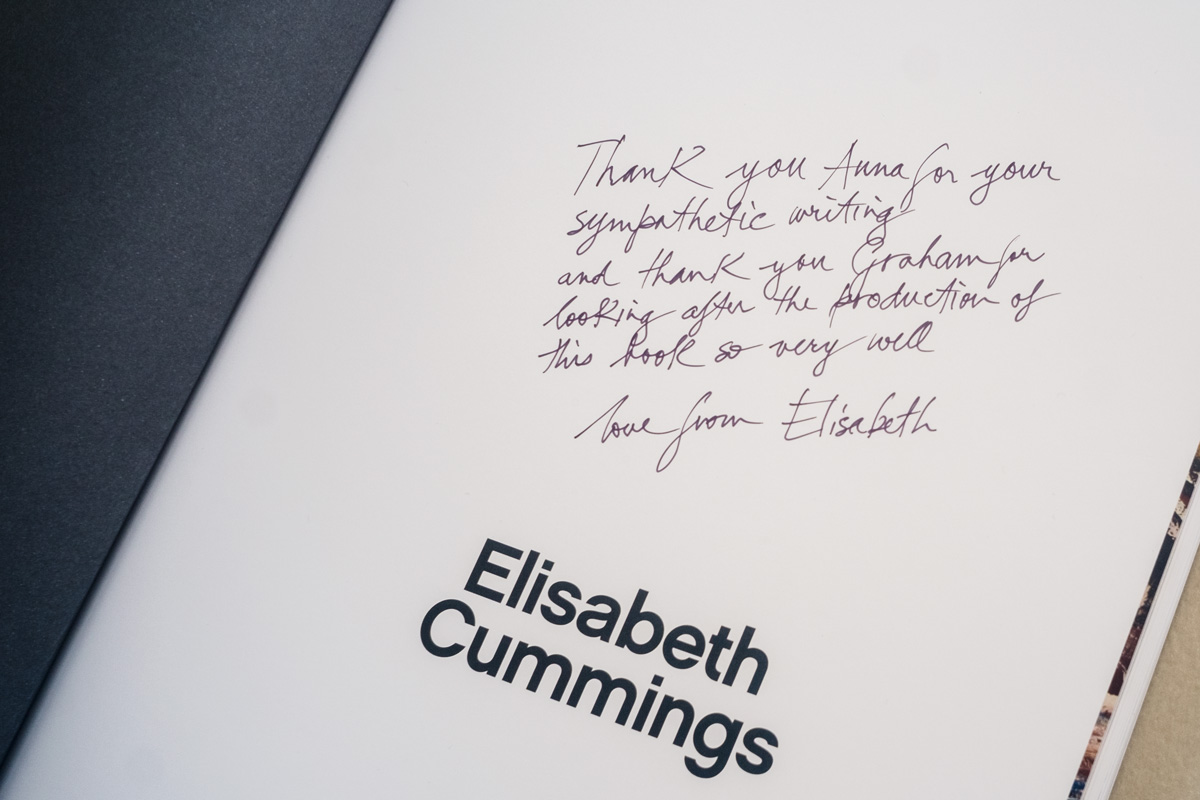 Thank you Anna for your
sympathetic writing
and thank you Graham for
looking after the production of
this book so very well
love from Elisabeth
Elisabeth
Cummings